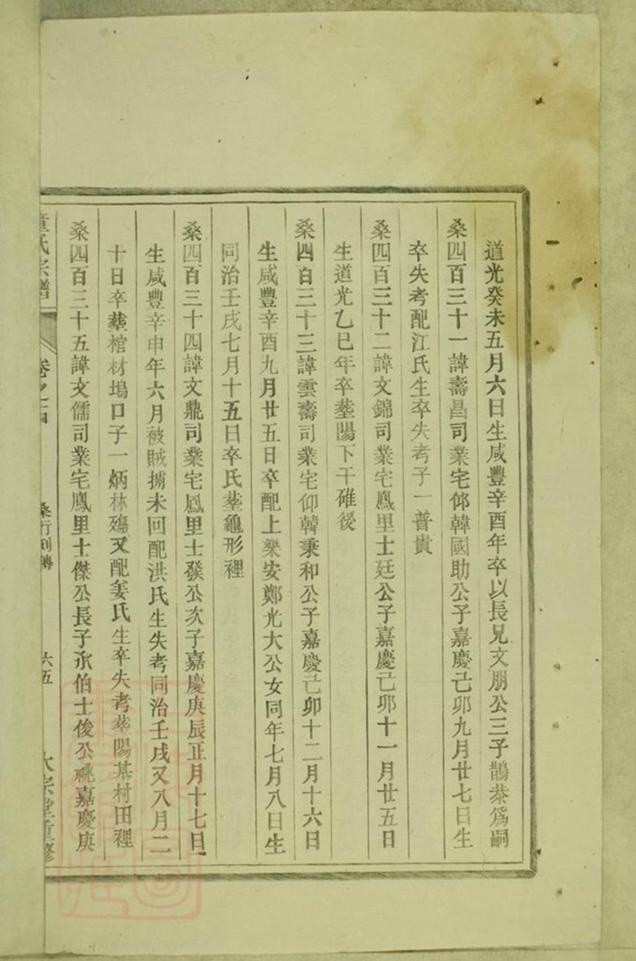 道光癸未五月六日生咸豐辛酉年卒以長兄文朋公三子鵲恭爲嗣
桑四百三十一諱壽昌司業宅仰韓國助公子嘉慶己卯九月廿七日生
卒失考配江氏生卒失考子一普貴
桑四百三十二諱文錦司業宅鳳里士廷公子嘉慶己卯十一月廿五日
生道光乙巳年卒塟陽下干碓後
桑四百三十三諱雲壽司業宅仰韓秉和公子嘉慶己卯十二月十六日
生咸豐辛酉九月廿五日卒配上樂安鄭光大公女同年七月八日生
同治壬戌七月十五日卒氏塟龜形裡
桑四百三十四諱文鼎司業宅鳳里士發公次子嘉慶庚辰正月十七日
生咸豐辛申年六月被賊擄未回配洪氏生失考同治壬戌又八月二
十日卒塟棺材塢口子一炳林殤又配姜氏生卒失考塟陽基村田裡
桑四百三十五諱文儒司業宅鳳里士傑公長子承伯士俊公祧嘉慶庚
童氏宗譜 卷之四 桑行列傳 六五 大宗堂重修